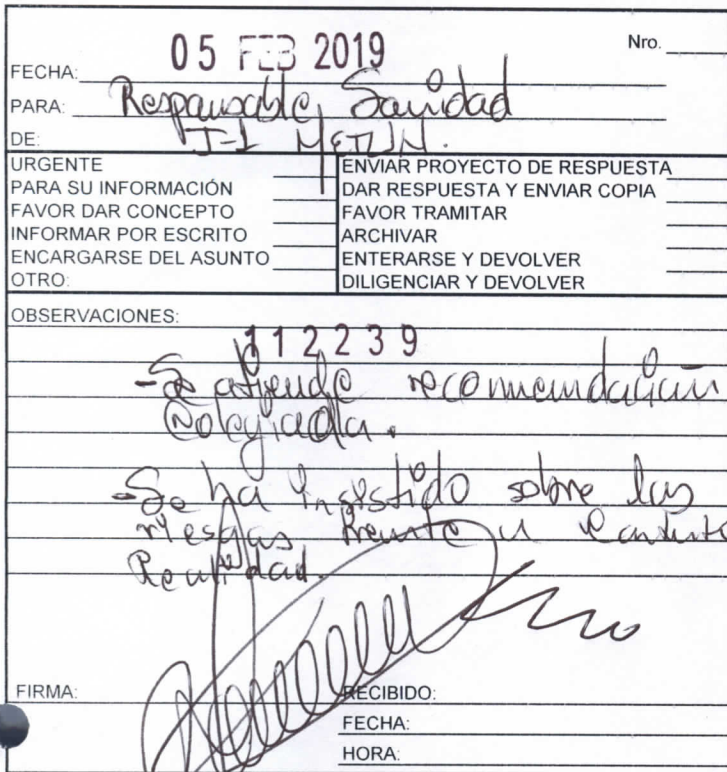 05 FEB 2019
Nro.
FECHA:
PARA: Responsable Sanidad
DE:
URGENTE
PARA SU INFORMACIÓN
FAVOR DAR CONCEPTO
INFORMAR POR ESCRITO
ENCARGARSE DEL ASUNTO
OTRO:
ENVIAR PROYECTO DE RESPUESTA
DAR RESPUESTA Y ENVIAR COPIA
FAVOR TRAMITAR
ARCHIVAR
ENTERARSE Y DEVOLVER
DILIGENCIAR Y DEVOLVER
OBSERVACIONES:
112239
- Se atiende recomendación
Colegiada.
- Se ha insistido sobre los
riesgos frente a
FIRMA:
RECIBIDO:
FECHA:
HORA: